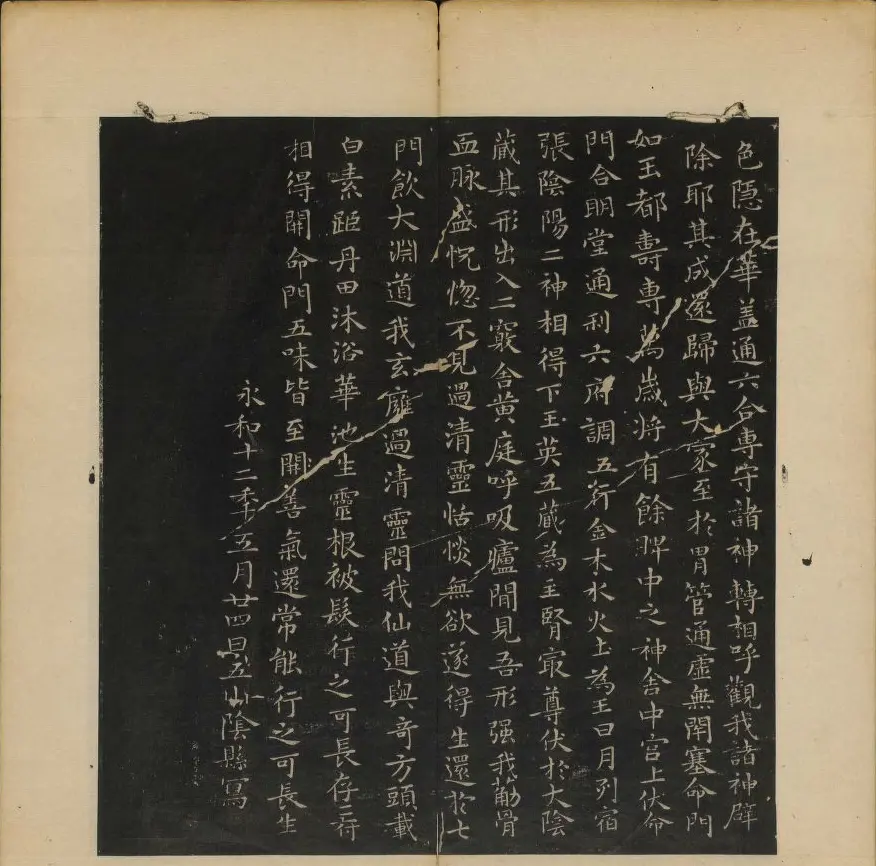 色隱在華盖通六合專守諸神轉相呼觀我諸神辟
除耶其成還歸與大家至於胃管通虛無閉塞命門
如玉都壽專為歲將有餘脾中之神舍中宮上伏命
門合明堂通利六府調五行金木水火土為王日月列宿
張陰陽二神相得下玉英五藏為主腎最尊伏於大陰
藏其形出入二竅舍黄庭呼吸廬間見吾形强我筋骨
血脉盛怳惚不見過清靈恬惔無欲遂得生還於七
門飲大淵道我玄廱過清靈問我仙道與奇方頭載
白素距丹田沐浴華池生靈根被髮行之可長存二府
相得開命門五味皆至開善氣還常能行之可長生
永和十二年五月廿四日五山陰縣寫